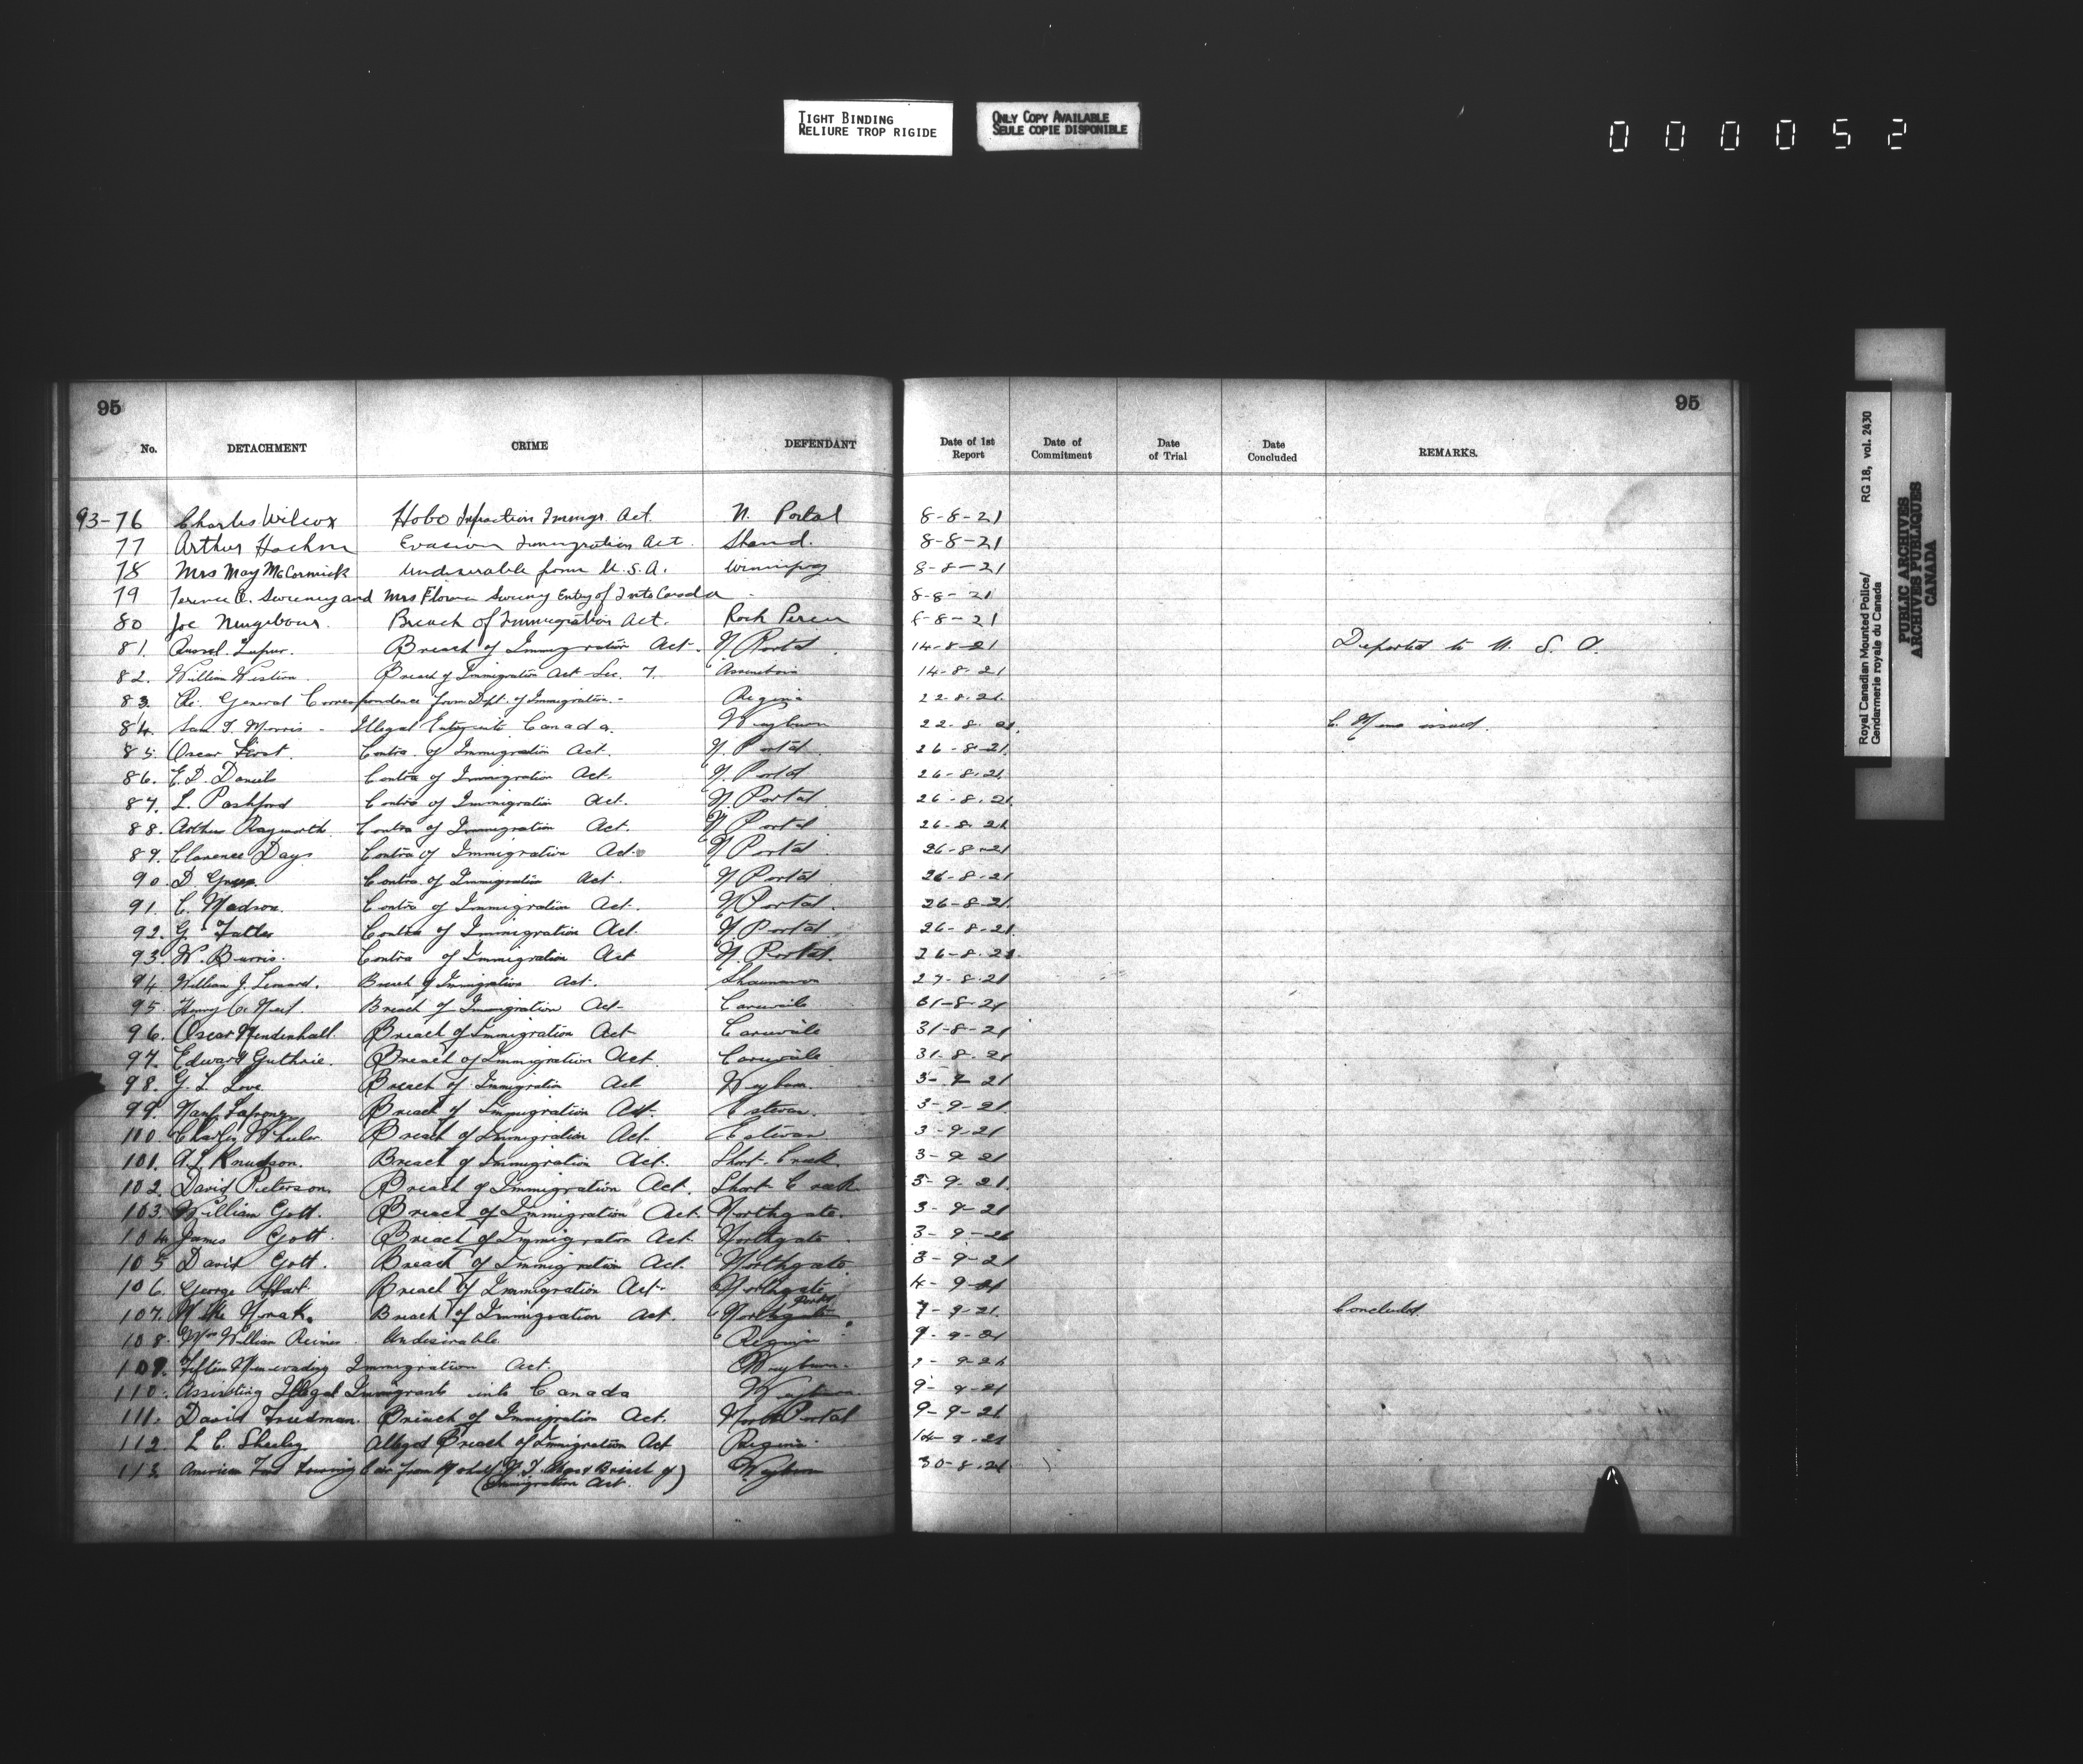 TIGHT BINDING
RELIURE TROP RIGIDE
ONLY COPY AVAILABLE
SEULE COPIE DISPONIBLE
000052
95 95
No. DETACHMENT CRIME DEFENDANT Date of 1st Report Date of Commitment Date of Trial Date Concluded REMARKS.
93-76 Charles Wilcox Hobo Infraction Immigr. Act. N. Portal 8-8-21
77 Arthur Evasion Immigration Act. Shand. 8-8-21
78 Mrs May McCormick Undesirable from U.S.A. Winnipeg 8-8-21
79 Terence Sweeney and Mrs Florence Sweeny Entry of Into Canada 8-8-21
80 Joe Breach of Immigration Act. Roch Percee 8-8-21
81. Breach of Immigration Act. N Portal. 14-8-21 Deported to U. S. A.
82. William Breach of Immigration Act Sec. 7. Assiniboia 14-8-21
83. Re. General Correspondence from Dept. of Immigration.- Regina 22-8-21
84. Sam Morris - Illegal Entry into Canada. Weyburn 22-8-21. C. Memo issued.
85. Oscar Contra. of Immigration Act. N. Portal. 26-8-21.
86. E. D. Daniels Contra of Immigration Act. N. Portal 26-8-21.
87. L. Pashford Contra of Immigration Act. N. Portal. 26-8-21.
88. Arthur Contra of Immigration Act. N Portal. 26-8-21
89. Clarence Days Contra of Immigration Act. N Portal. 26-8-21
90. D. Contra of Immigration Act. N Portal 26-8-21
91. C. Madson. Contra of Immigration Act. N Portal. 26-8-21.
92. G. Contra of Immigration Act. N. Portal. 26-8-21.
93. W. Burris. Contra of Immigration Act N. Portal. 26-8-21.
94. William J. Breach of Immigration Act. 27-8-21
95. Henry Breach of Immigration Act- Carievale 31-8-21
96. Oscar Mendenhall. Breach of Immigration Act- Carievale 31-8-21
97. Edward Guthrie. Breach of Immigration Act Carievale 31-8-21
98. G. L. Love. Breach of Immigration Act Weyburn. 3-9-21
99. Breach of Immigration Act. Estevan. 3-9-21.
110. Charley Wheeler. Breach of Immigration Act. Estevan 3-9-21
101. A. L. Knudson. Breach of Immigration Act. Short-Creek. 3-9 21
102. David Pieterson. Breach of Immigration Act. Short Creek 3-9-21.
103. William Gott. Breach of Immigration Act. Northgate. 3-9-21
104. James Gott. Breach of Immigration Act. Northgate. 3-9-21
105 David Gott. Breach of Immigration Act. Northgate. 3-9-21
106. George Breach of Immigration Act- Northgate 4-9-21
107. Mike Novak. Breach of Immigration Act. North Portal 7-9-21. Concluded.
108. William Reimer. Undesirable. Regina 9-9-21
109. Fifteen Men evading Immigration Act. Weyburn. 9-9-21
110. Assisting Illegal Immigrants into Canada Weyburn. 9-9-21
111. David Friedman. Breach of Immigration Act. North Portal 9-9-21
112. L C. Alleged Breach of Immigration Act Regina. 14-9-21
113. American Ford Touring Car from Breach of) Weyburn 30-8-21
(Immigration Act.
Royal Canadian Mounted Police/ RG 18, vol. 2430
Gendarmerie royale du Canada
PUBLIC ARCHIVES
ARCHIVES PUBLIQUES
CANADA